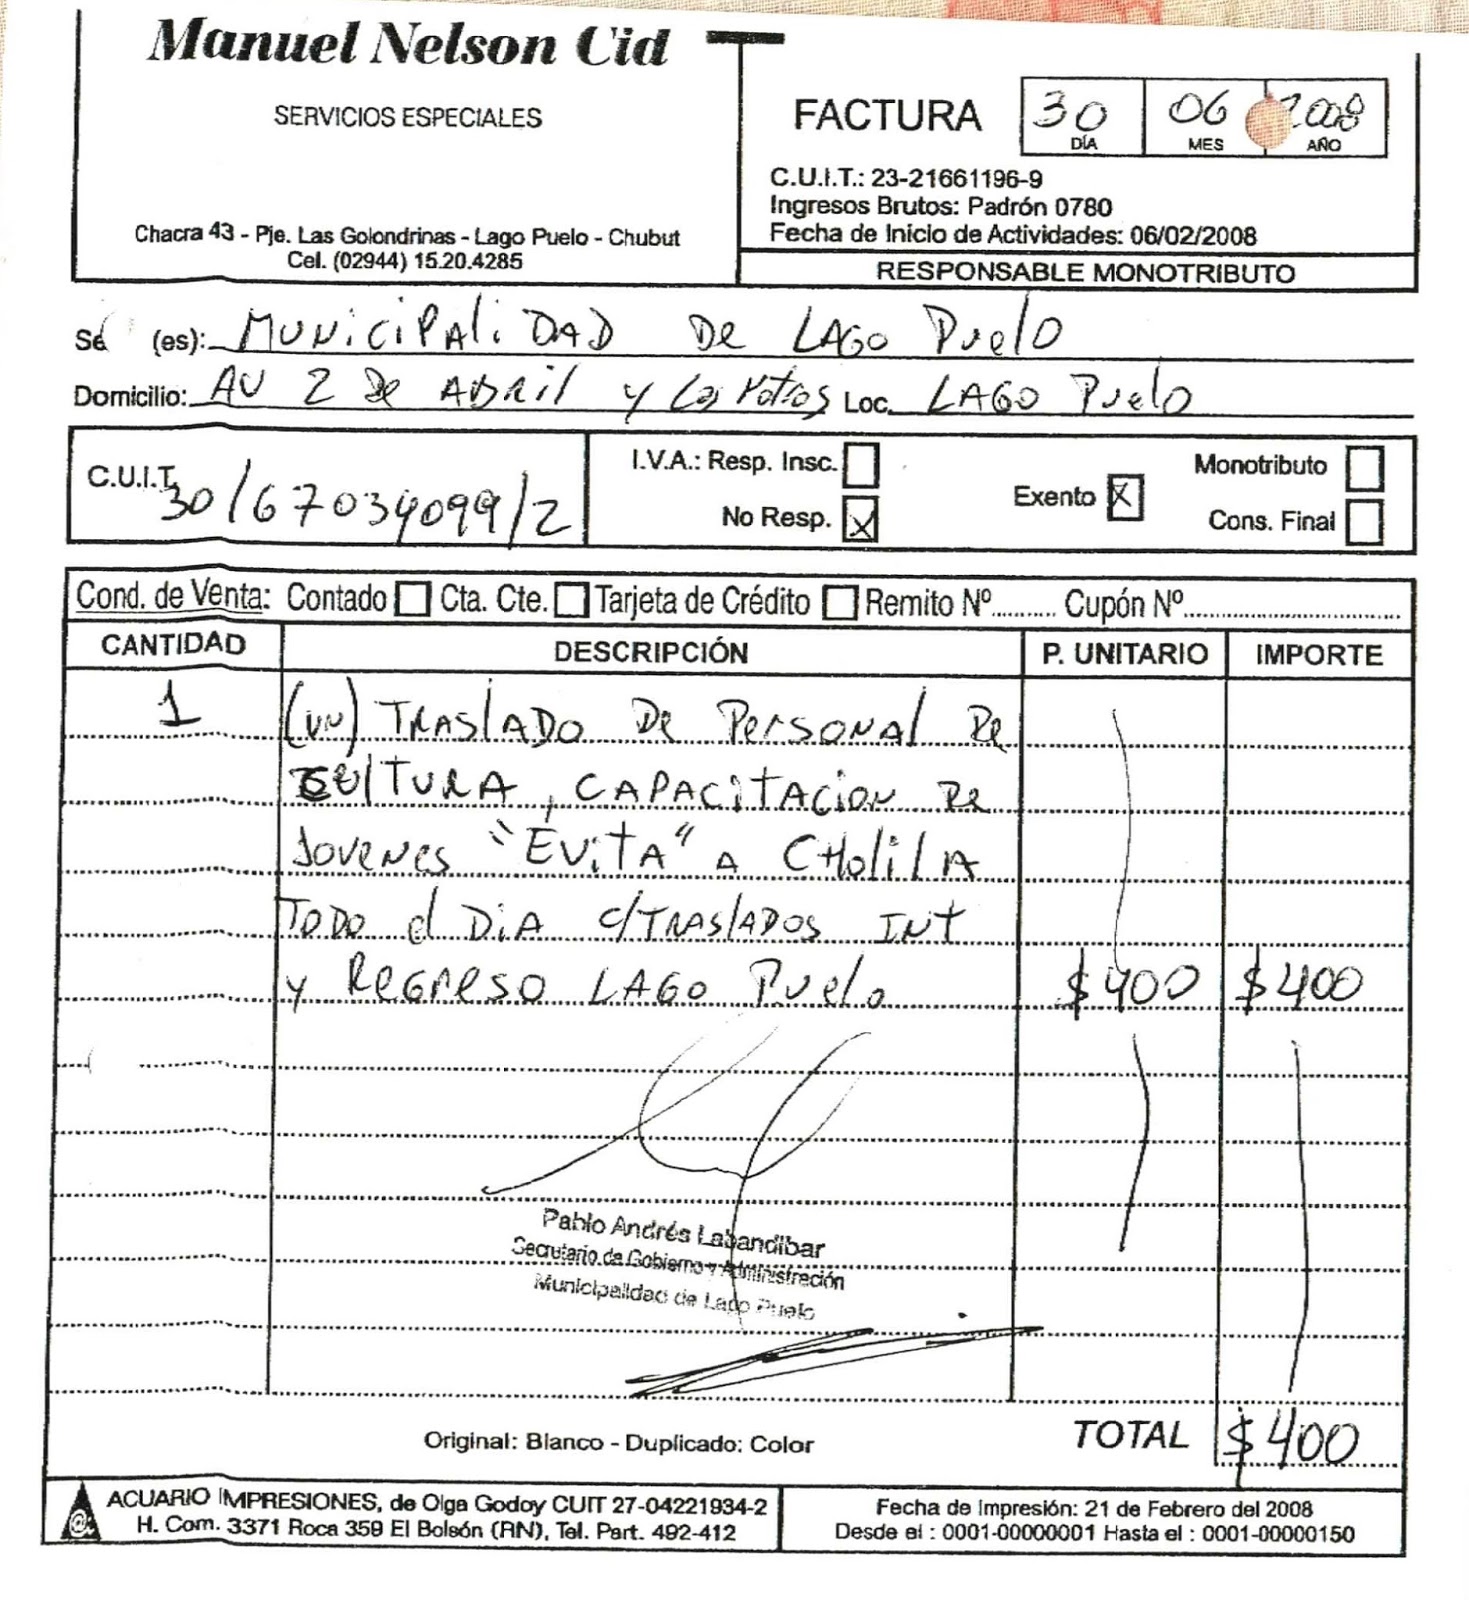 Manuel Nelson Cid
SERVICIOS ESPECIALES
Chacra 43 - Pje. Las Golondrinas - Lago Puelo - Chubut
Cel. (02944) 15.20.4285
FACTURA
30 06 2008
DÍA MES AÑO
C.U.I.T.: 23-21661196-9
Ingresos Brutos: Padrón 0780
Fecha de Inicio de Actividades: 06/02/2008
RESPONSABLE MONOTRIBUTO
(es): MUNICIPALIDAD DE LAGO PUELO
Domicilio: AV 2 DE ABRIL y Los Loc. LAGO PUELO
C.U.I.T. 30/67034099/2
I.V.A.: Resp. Insc.
No Resp. X
Exento X
Monotributo
Cons. Final
Cond. de Venta: Contado Cta. Cte. Tarjeta de Crédito Remito Nº.......... Cupón Nº..........
CANTIDAD DESCRIPCIÓN P. UNITARIO IMPORTE
1 (UN) TRASLADO DE PERSONAL DE
CULTURA, CAPACITACION DE
JOVENES "EVITA" A CHOLILA
TODO el DIA c/TRASLADOS INT
y REGRESO LAGO PUELO $400 $400
Pablo Andrés Labandibar
Secretario de Gobierno y Administración
Municipalidad de Lago Puelo
Original: Blanco - Duplicado: Color
TOTAL $400
ACUARIO IMPRESIONES, de Olga Godoy CUIT 27-04221934-2
H. Com. 3371 Roca 359 El Bolsón (RN), Tel. Part. 492-412
Fecha de Impresión: 21 de Febrero del 2008
Desde el : 0001-00000001 Hasta el : 0001-00000150